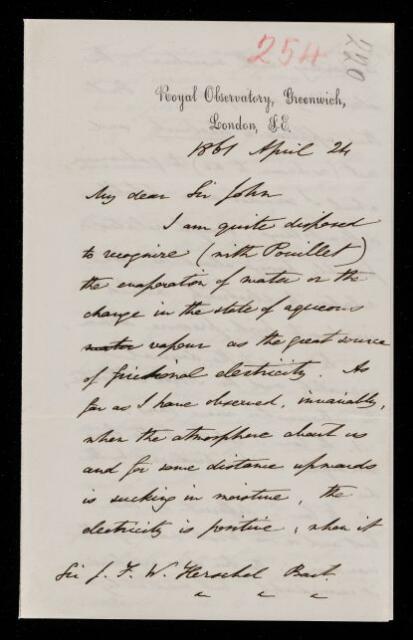 254
220
Royal Observatory, Greenwich,
London, S.E.
1861 April 24
My dear Sir John
I am quite disposed
to recognize (with Pouillet)
the evaporation of water or the
change in the state of aqueous
water vapour as the great source
of frictional electricity. As
far as I have observed, invariably,
when the atmosphere about us
and for some distance upwards
is sucking in moisture, the
electricity is positive, when it
Sir J. F. W. Herschel Bart.